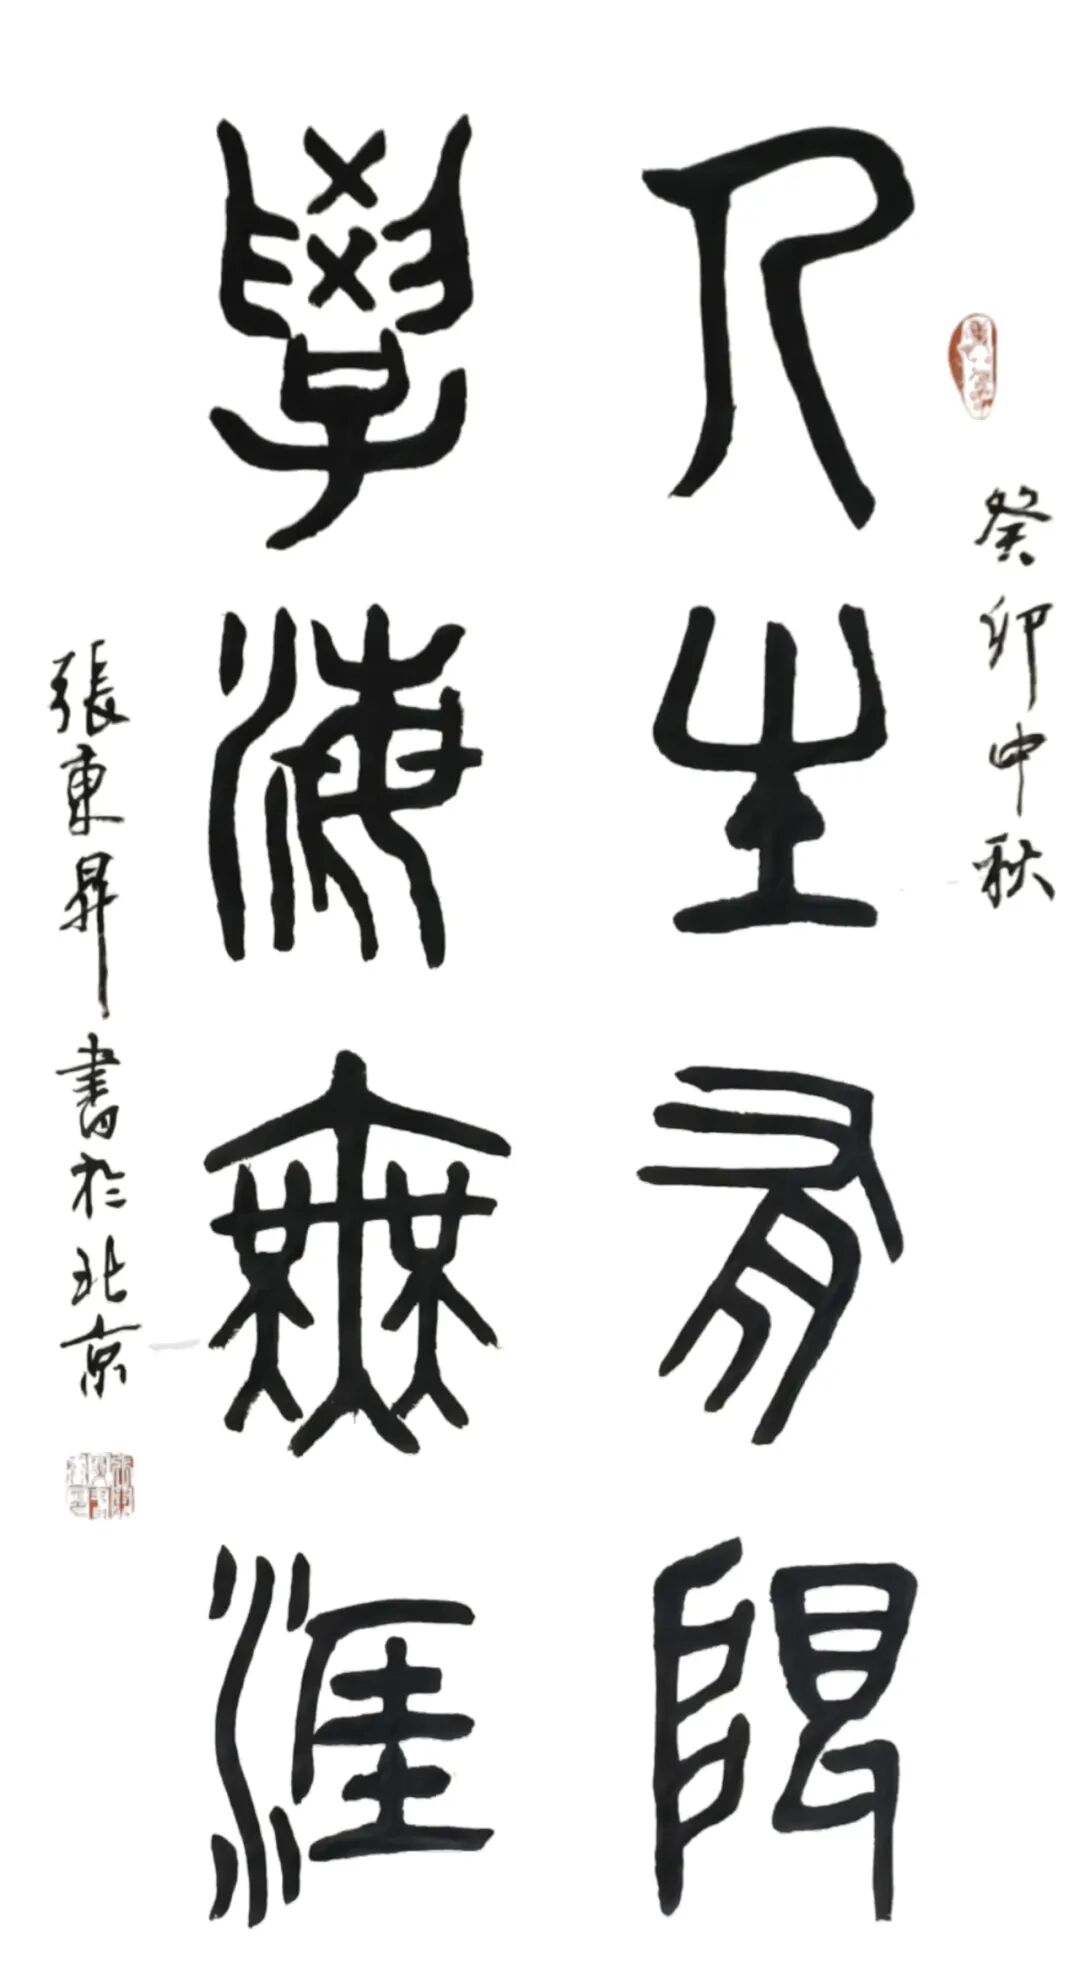 癸卯中秋
人生有限
學海無涯
張東昇書於北京